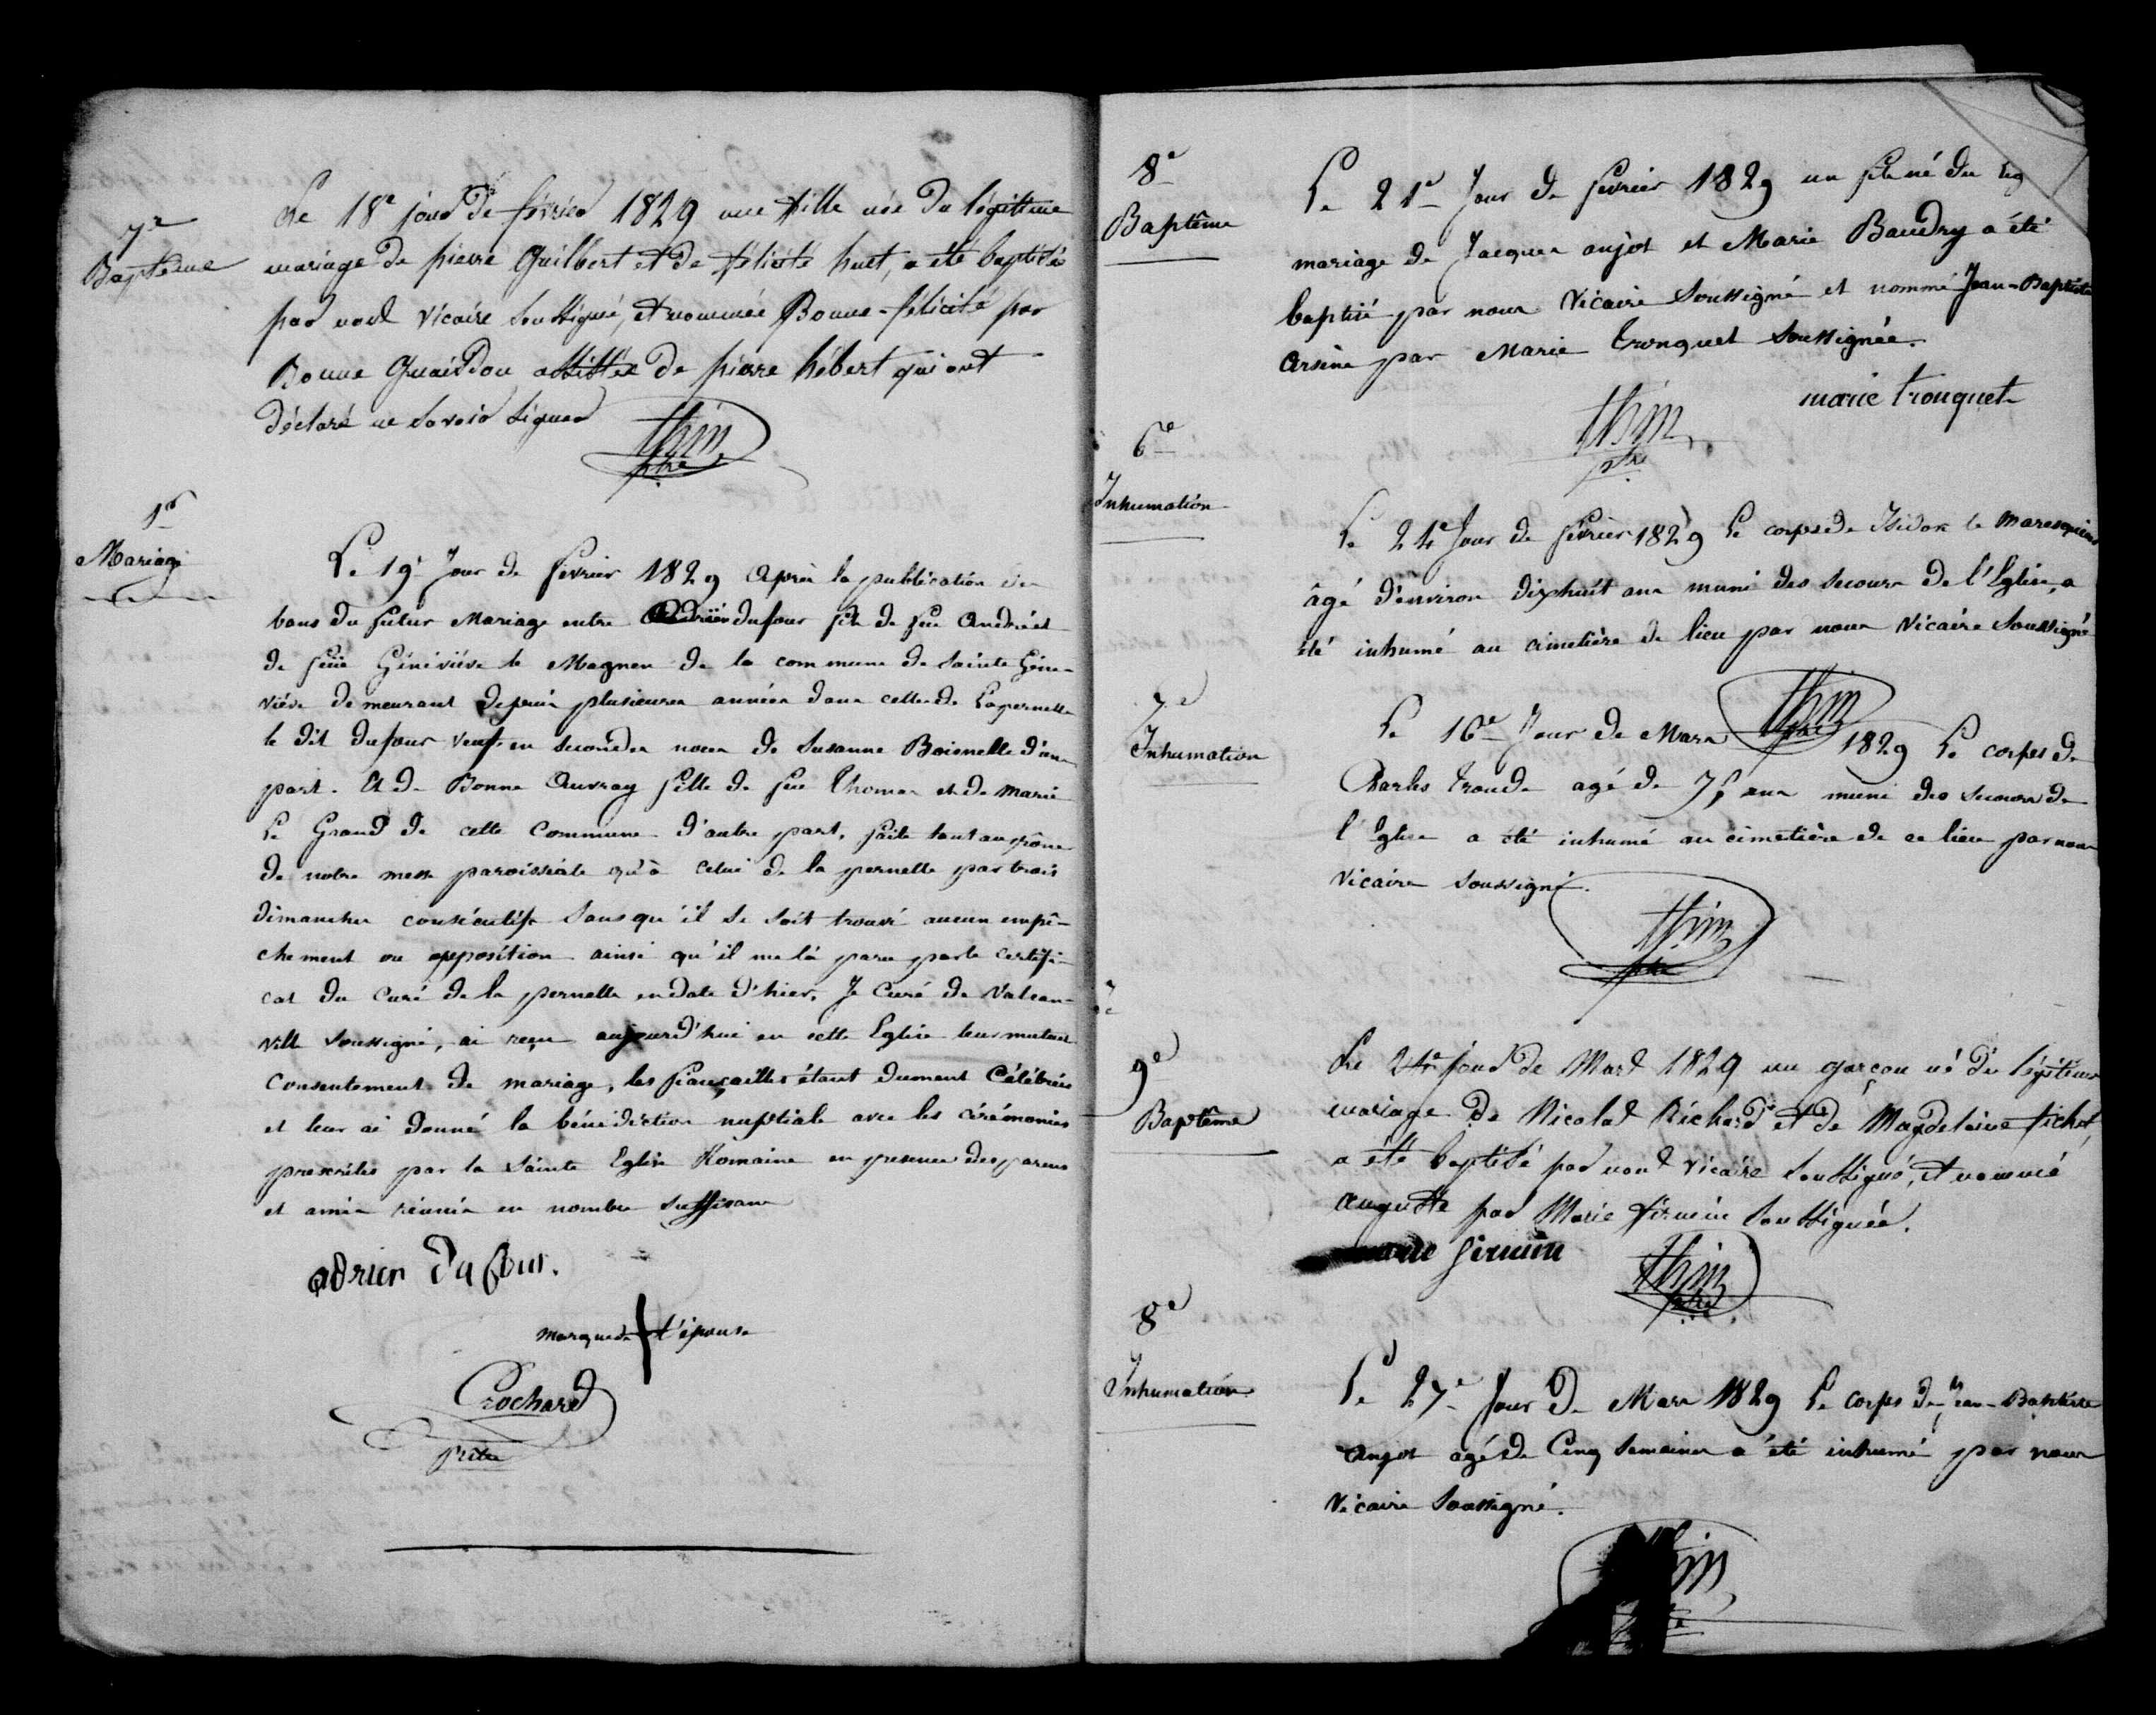 7e
Baptême
Le 18e jour de février 1829 une fille née du légitime
mariage de pierre Guilbert et de félicité huet, a été baptisée
par nous Vicaire soussigné, et nommée Bonne-félicité par
Bonne Guéisdon assistée de pierre hébert qui ont
déclaré ne savoir signer
thin
ptre
1er
Mariage
Le 19e Jour de fevrier 1829 Après la publication des
bans du futur Mariage entre Adrien dufour fils de feu André et
de feüe Géniviève le Magnen de la commune de Sainte Géne-
viève demeurant depuis plusieures années dans celle de Lapernelle
le dit dufour veuf en secondes noces de Susanne Boisnelle d'une
part. Et de Bonne Auvray fille de feu Thomas et de Marie
Le Grand de cette Commune d'autre part, faite tant au prône
de notre messe paroissiale qu'à celui de la pernelle par trois
dimanches consécutifs sans qu'il se soit trouvé aucun empê-
chement ou opposition ainsi qu'il me l'a paru par le certifi-
cat du Curé de la pernelle en date d'hier, Je Curé de Valcan-
ville soussigné, ai reçu aujourd'hui en cette Eglise leur mutuel
Consentement de mariage, les fiançailles étant dument Célébrées
et leur ai donné la bénédiction nuptiale avec les cérémonies
prescrites par la Sainte Eglise Romaine en presence des parens
et amis réunis en nombre suffisant
adrien Dufour.
marque de l'épouse
Crochard
Prtre
8e
Baptême
Le 21e Jour de fevrier 1829 un fils né du leg
mariage de Jacques anjot et Marie Baudry a été
baptisé par nous Vicaire Soussigné et nommé Jean-Baptiste
Arsène par Marie Tronquet Soussignée.
marie tronquet
thin
ptre
6e
Inhumation
Le 24e Jour de fevrier 1829 Le corps de Isidore le Maresquier
âgé d'environ dixhuit ans muni des secours de l'Eglise, a
été inhumé au cimetière de lieu par nous Vicaire Soussigné
thin
ptre
7e
Inhumation
Le 16e Jour de Mars 1829 Le corps de
Charles troude agé de ans muni des secours de
l'Eglise a été inhumé au cimetière de ce lieu par nous
Vicaire soussigné.
thin
ptre
9e
Baptême
Le 24e jour de Mars 1829 un garçon né du légitime
mariage de Nicolas Richard et de Magdelaine fichet,
a été baptisé par nous vicaire soussigné, et nommé
auguste par Marie firmin soussignée.
firmin
thin
ptre
8e
Inhumation
Le 27e Jour de Mars 1829 Le corps de Jean-Baptiste
Anjot agé de Cinq semaines a été inhumé par nous
Vicaire Soussigné.